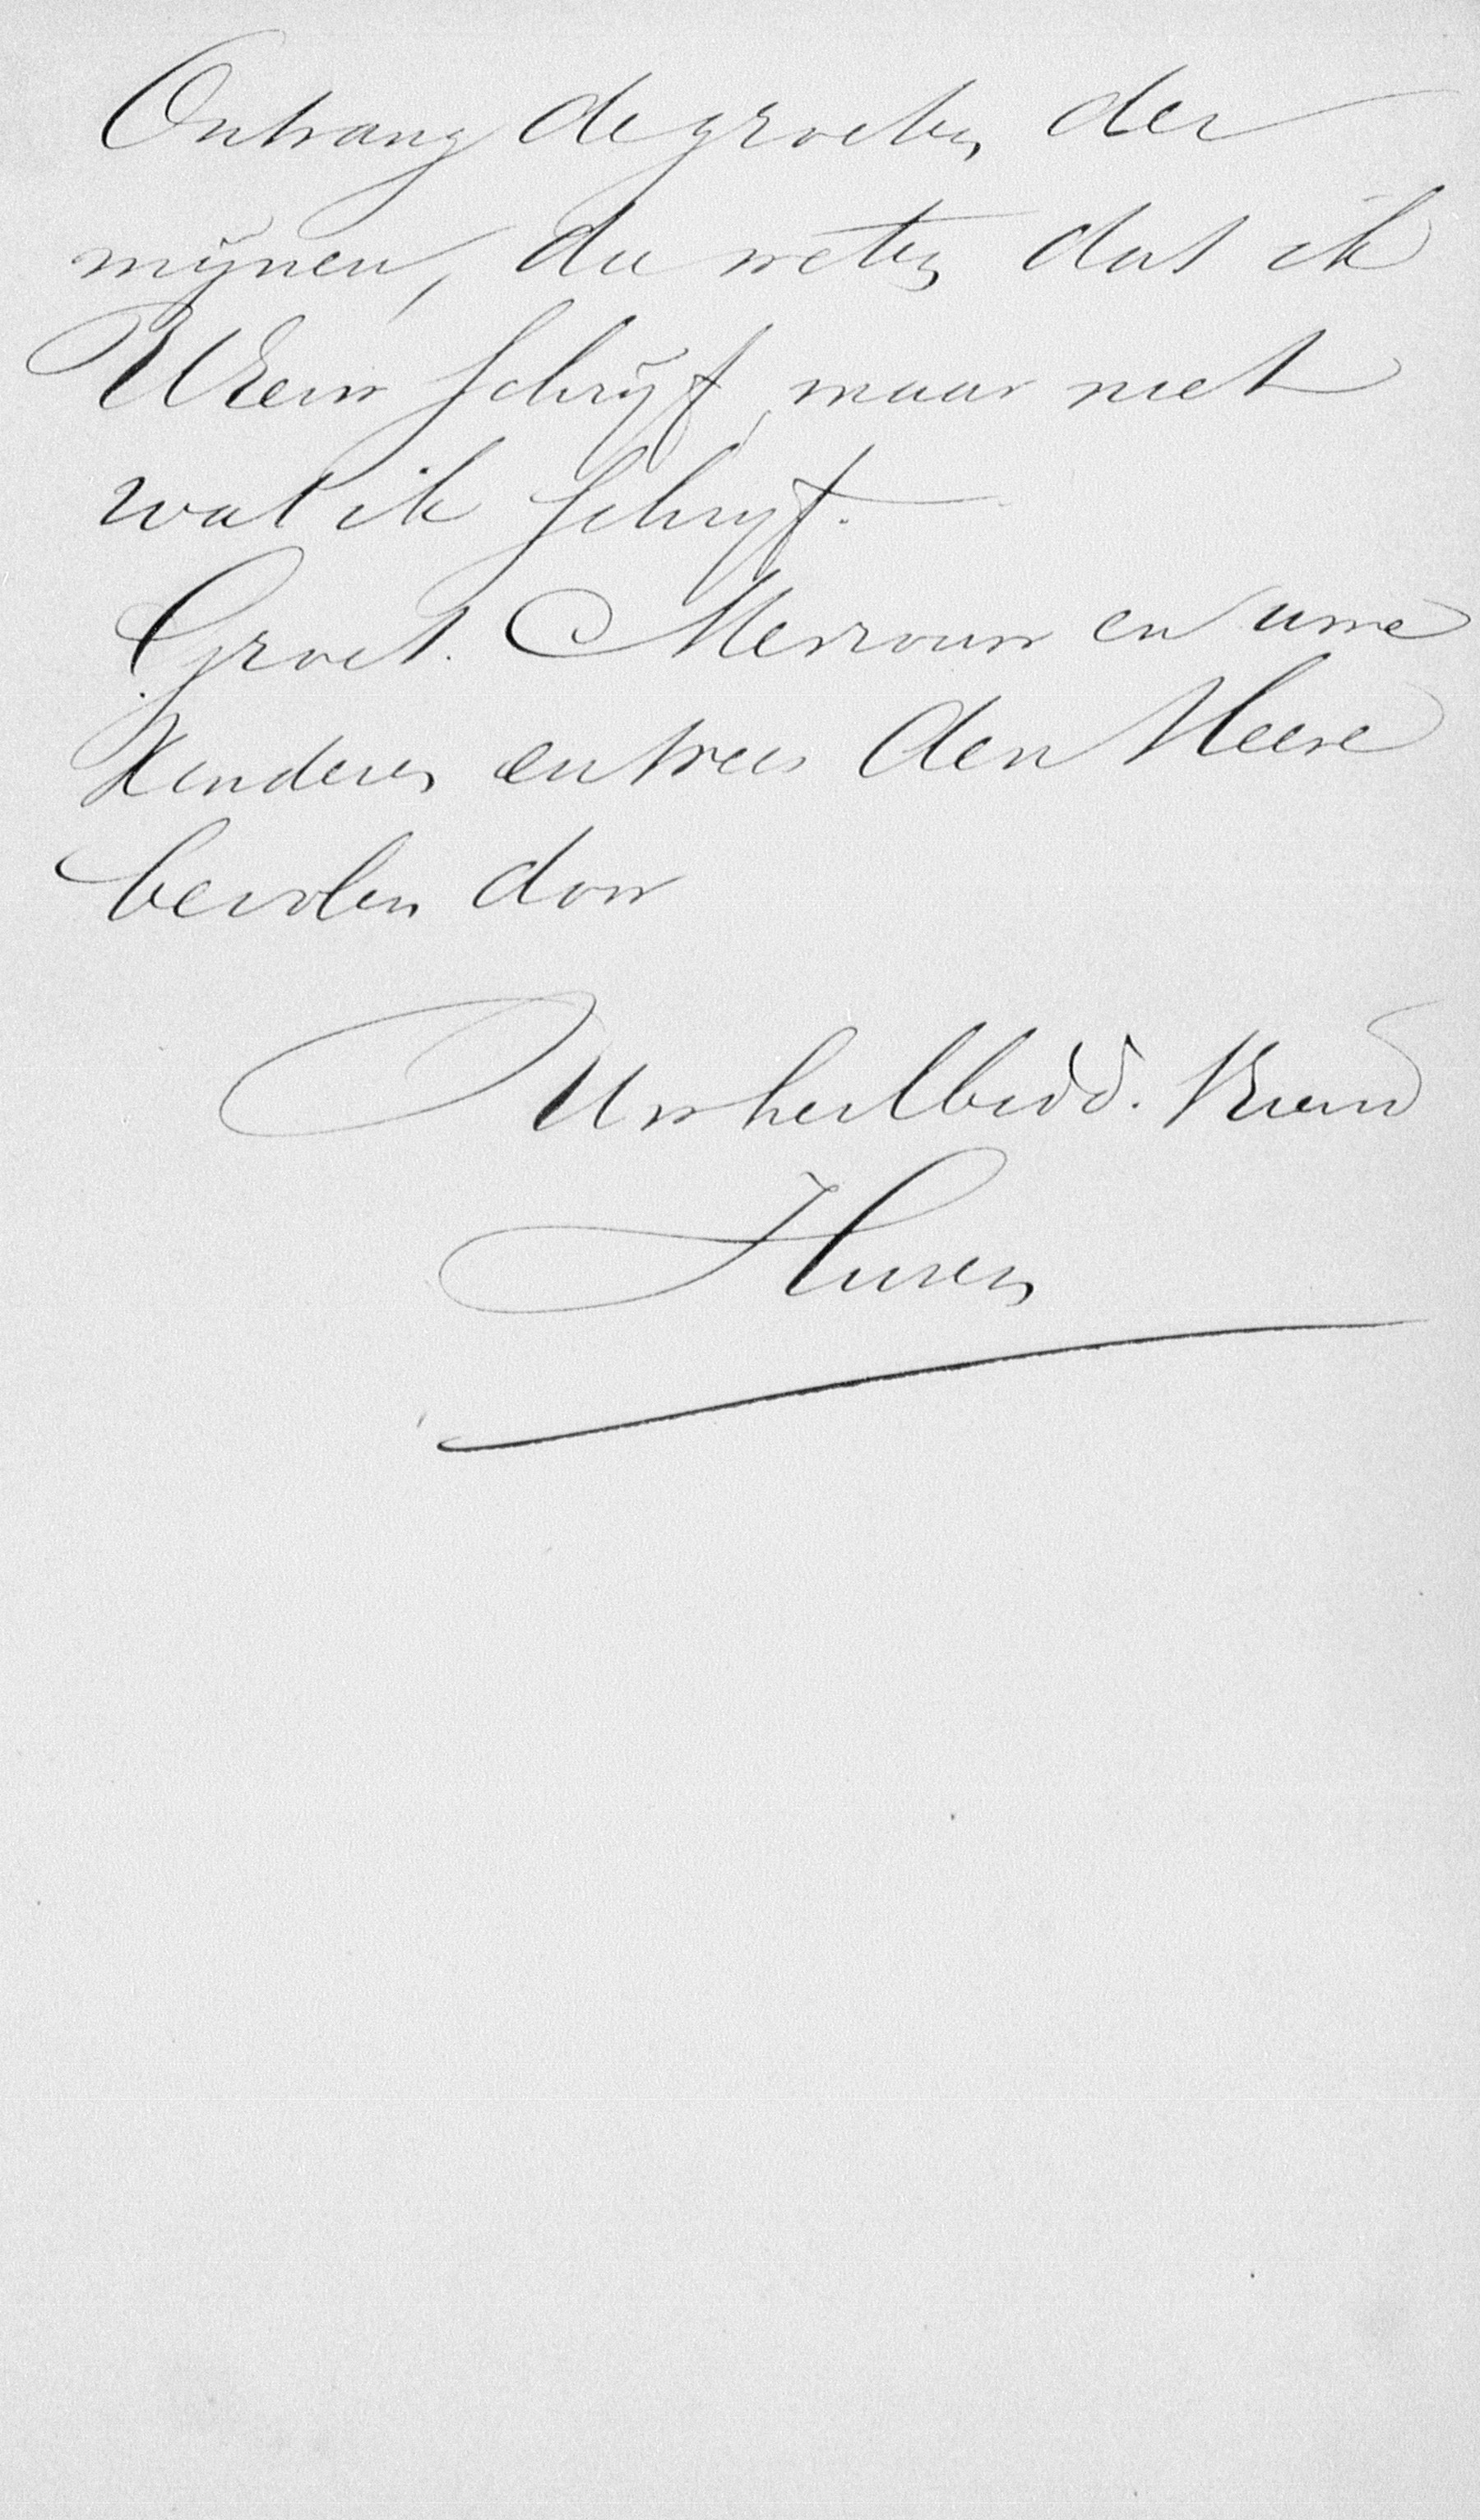 Ontvang de groeten der
mijnen, die weten dat ik
UEerw schrijf, maar niet
wat ik schrijf.
Groet Mevrouw en uwe
Kinderen en wees den Heere
bevolen door
Uw heilbidd. Vriend
Huren